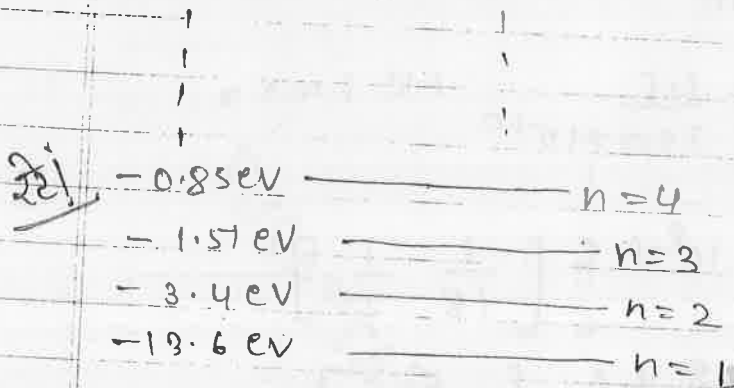 -0.85 eV n=4
-1.51 eV n=3
-3.4 eV n=2
-13.6 eV n=1